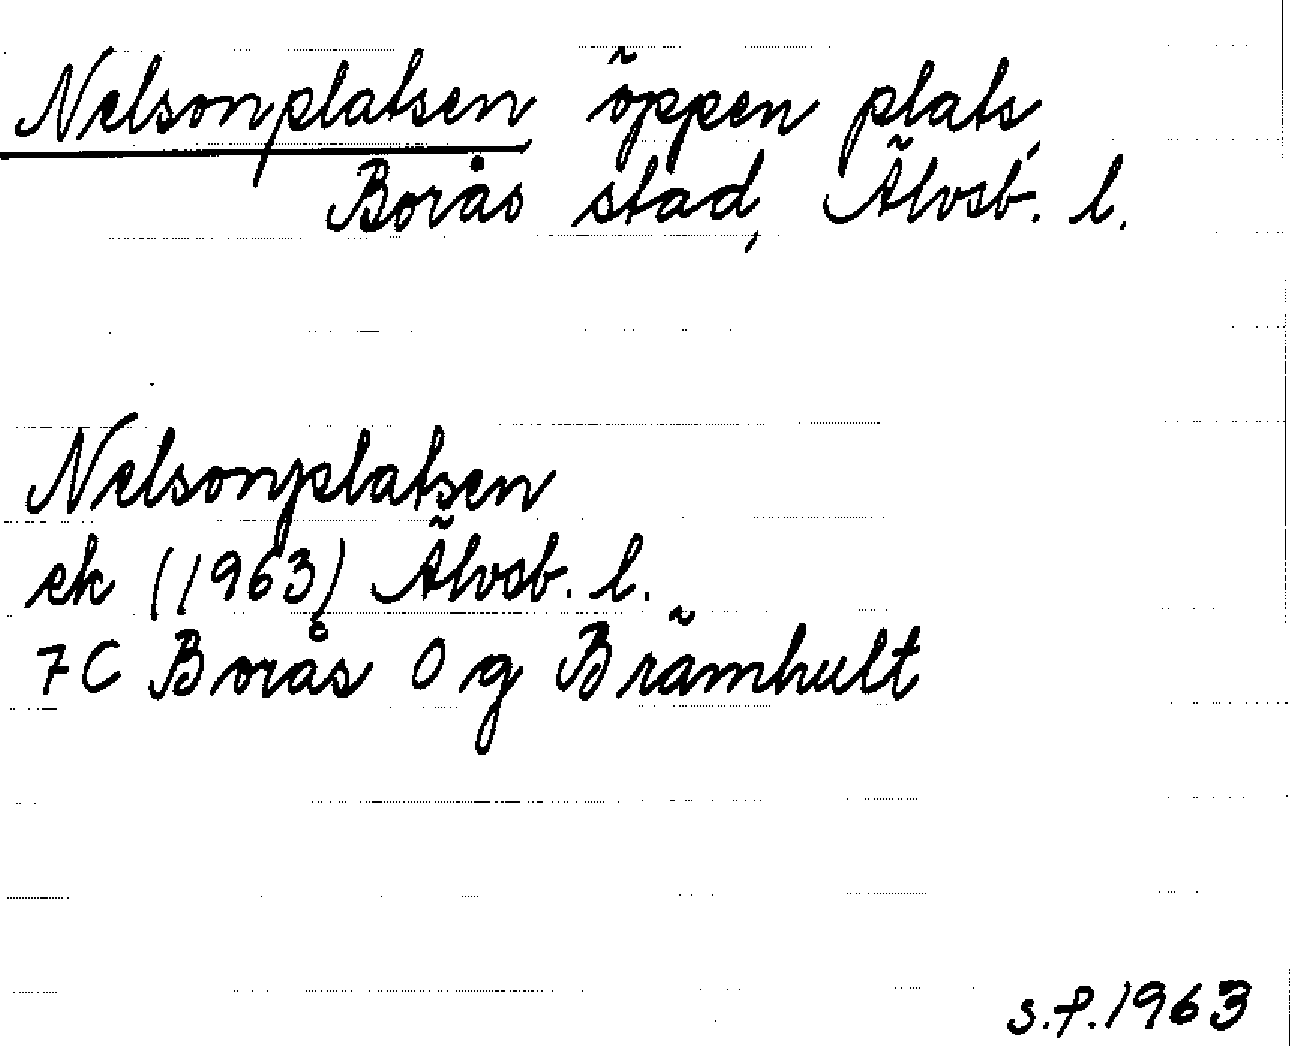 Nelsonplatsen, öppen plats,
Borås stad, Älvsb. l.
Nelsonplatsen
ek (1963) Älvsb. l.
7C Borås 0 g Brämhult
s.f. 1963